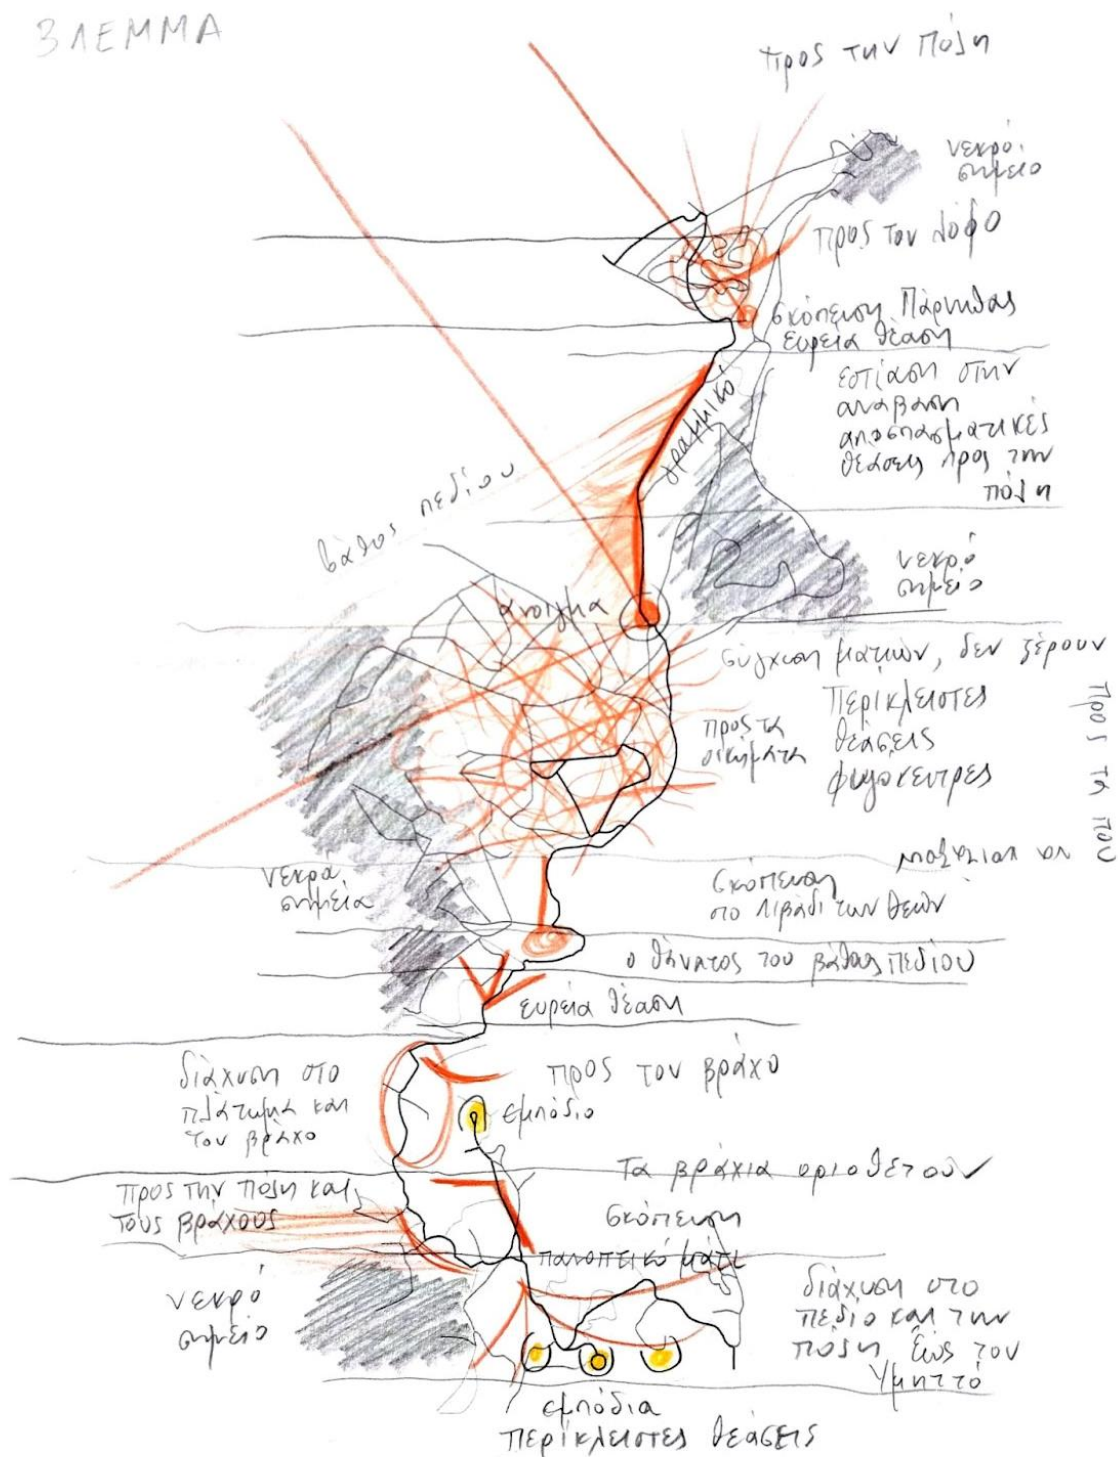 ΒΛΕΜΜΑ
προς την πόλη
νεκρό
σημείο
προς τον λόφο
σκόπευση Πάρνηθας
ευρεία θέαση
εστίαση στην
ανάβαση
αποσπασματικές
θεάσεις προς την
πόλη
γραμμικό
βάθος πεδίου
νεκρό
σημείο
άνοιγμα
σύγχυση ματιών, δεν ξέρουν
προς τα που
περίκλειστες
θεάσεις
φυγόκεντρες
προς τα
οικήματα
να
νεκρά
σημεία
σκόπευση
στο λιβάδι των θεών
ο θάνατος του βάθους πεδίου
ευρεία θέαση
διάχυση στο
πλάτωμα και
τον βράχο
προς τον βράχο
εμπόδιο
Τα βράχια οριοθετούν
προς την πόλη και
τους βράχους
σκόπευση
πανοπτικό μάτι
νεκρό
σημείο
διάχυση στο
πεδίο και την
πόλη έως τον
Υμηττό
εμπόδια
περίκλειστες θεάσεις